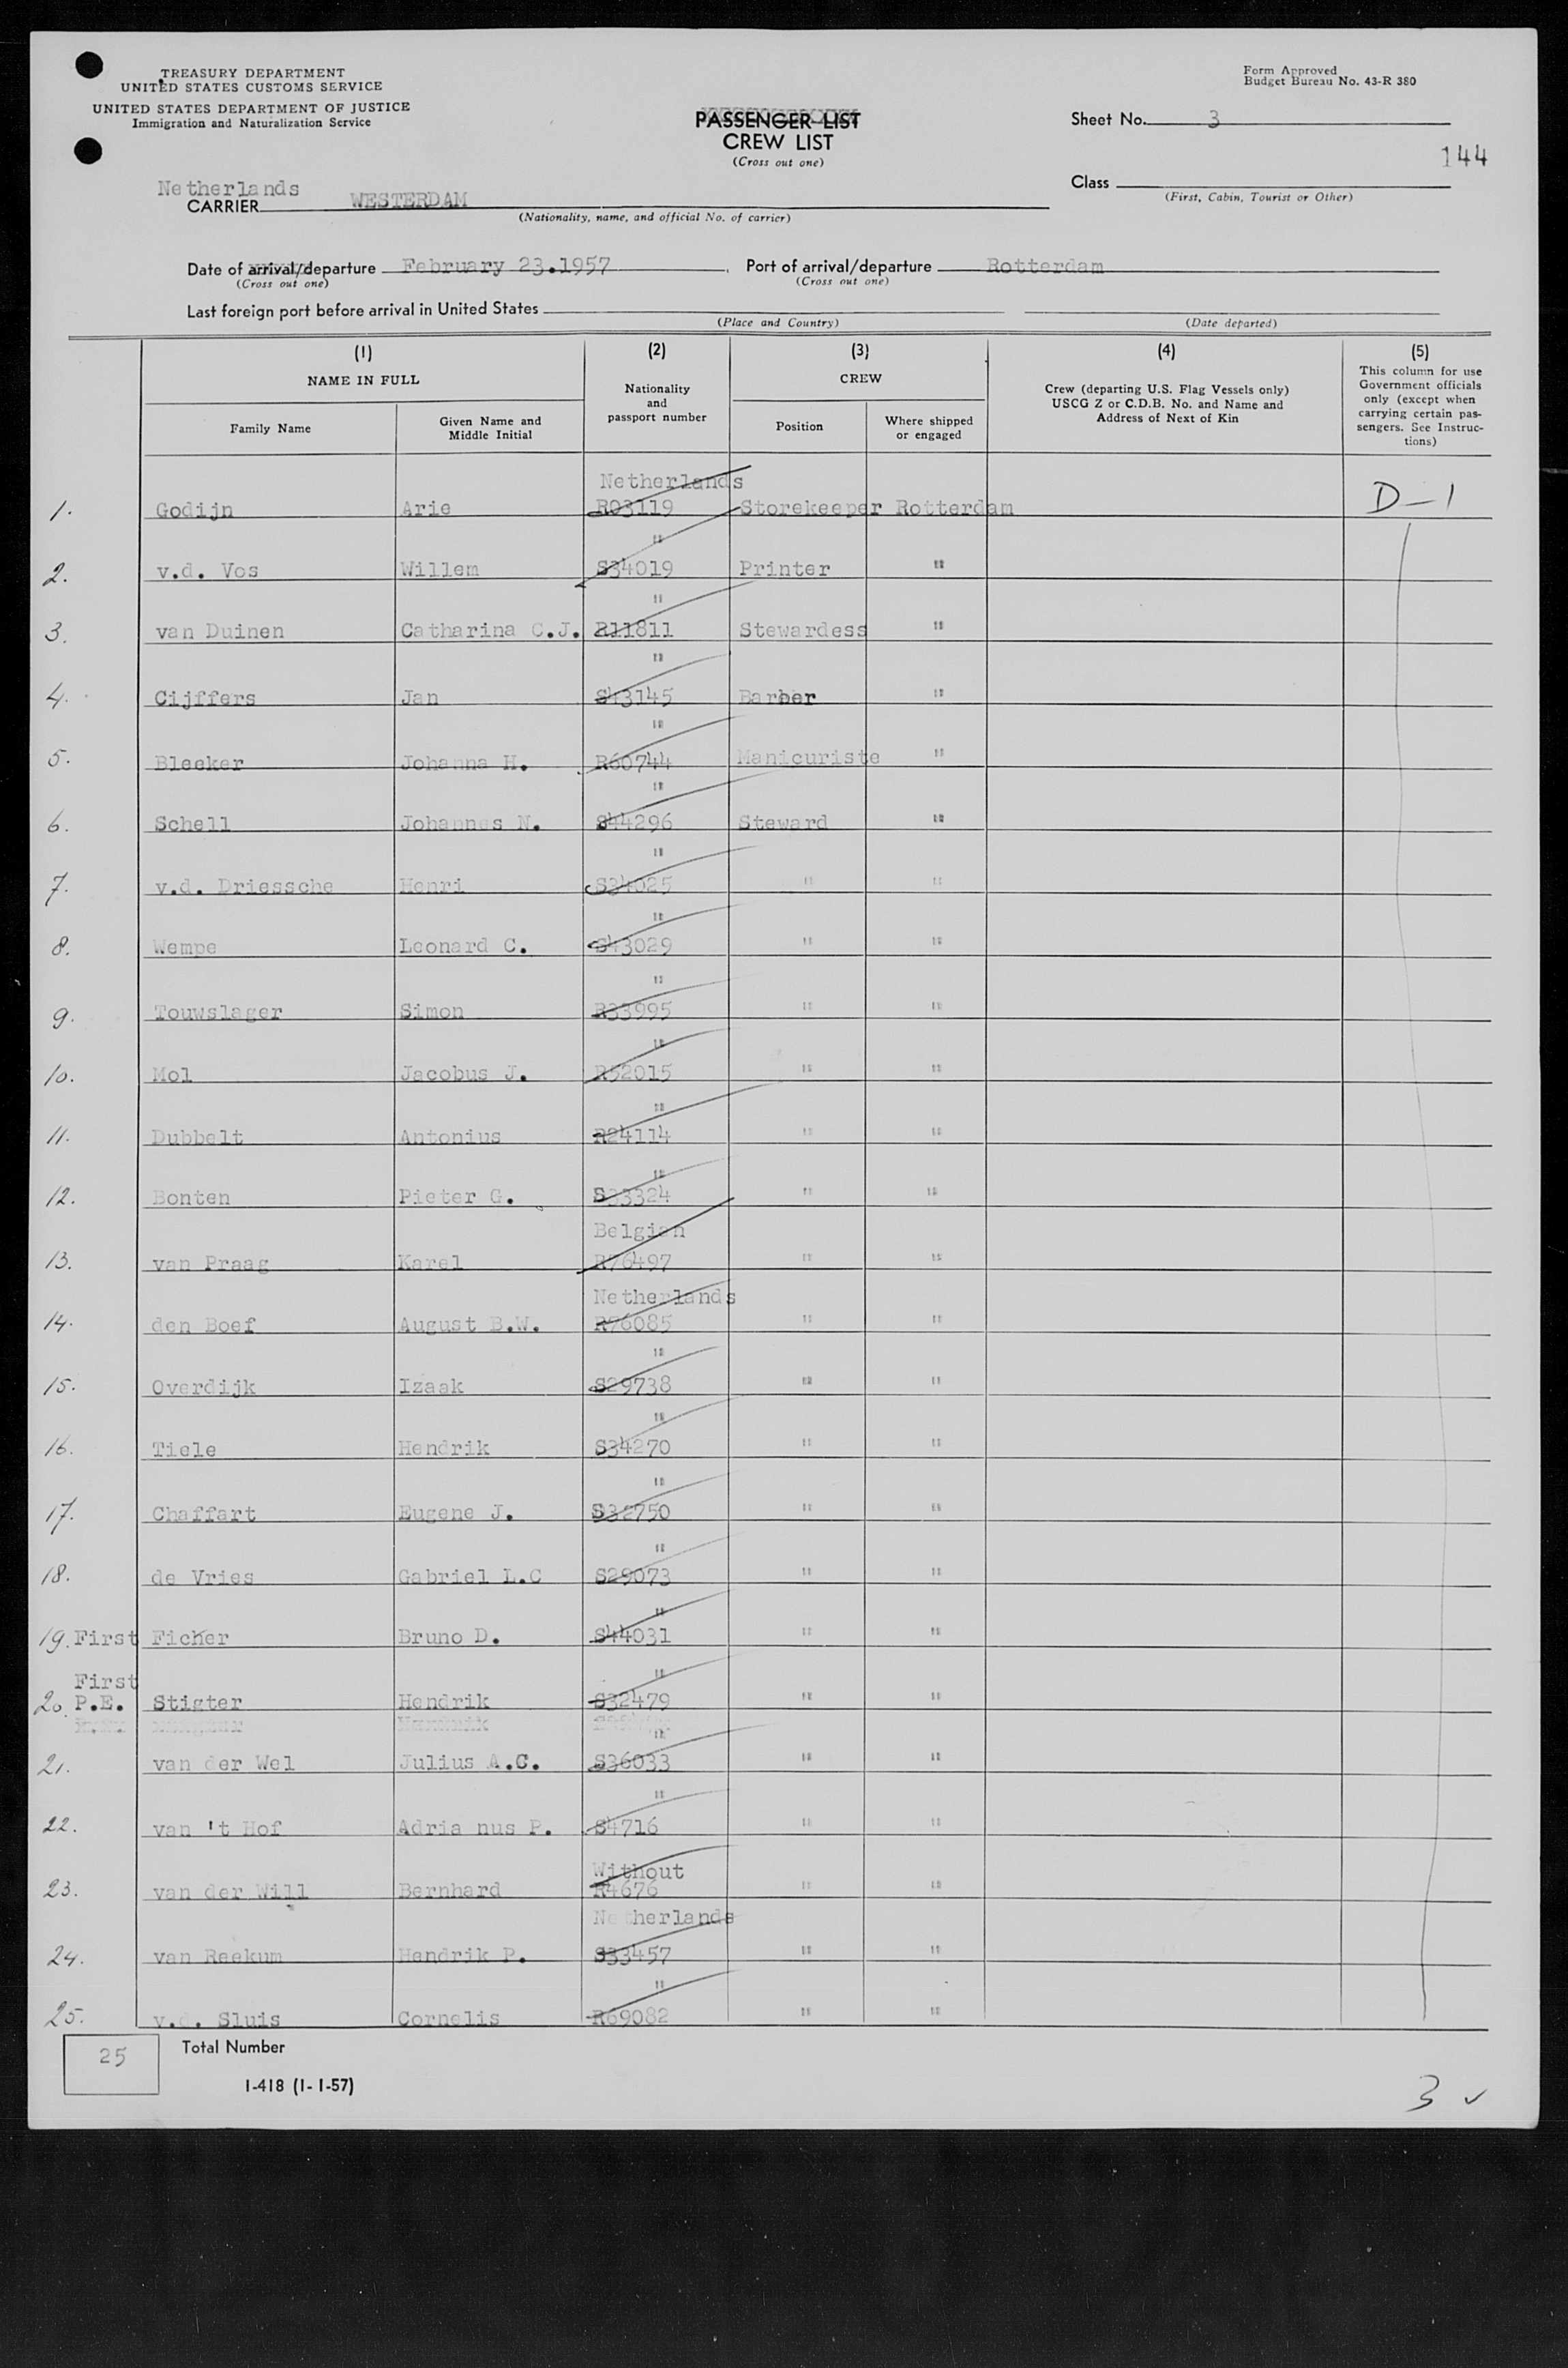 TREASURY DEPARTMENT
UNITED STATES CUSTOMS SERVICE
UNITED STATES DEPARTMENT OF JUSTICE
Immigration and Naturalization Service
Form Approved
Budget Bureau No. 43-R 380
PASSENGER LIST
CREW LIST
(Cross out one)
Sheet No. 3
144
Class
(First, Cabin, Tourist or Other)
Netherlands
CARRIER WESTERDAM
(Nationality, name, and official No. of carrier)
Date of arrival/departure February 23.1957 Port of arrival/departure Rotterdam
(Cross out one) (Cross out one)
Last foreign port before arrival in United States
(Place and Country) (Date departed)
(1) (2) (3) (4) (5)
NAME IN FULL
Family Name
Given Name and
Middle Initial
Nationality
and
passport number
CREW
Position
Where shipped
or engaged
Crew (departing U.S. Flag Vessels only)
USCG Z or C.D.B. No. and Name and
Address of Next of Kin
This column for use
Government officials
only (except when
carrying certain pas-
sengers. See Instruc-
tions)
Netherlands
1. Godijn Arie R03119 Storekeeper Rotterdam D-1
"
2. v.d. Vos Willem S34019 Printer "
"
3. van Duinen Catharina C.J. R11811 Stewardess "
"
4. Cijffers Jan S43145 Barber "
"
5. Bleeker Johanna H. R60744 Manicuriste "
"
6. Schell Johannes N. S44296 Steward "
"
7. v.d. Driessche Henri S34025 " "
"
8. Wempe Leonard C. S43029 " "
"
9. Touwslager Simon R33995 " "
"
10. Mol Jacobus J. R52015 " "
"
11. Dubbelt Antonius R24114 " "
"
12. Bonten Pieter G. S33324 " "
Belgian
13. van Praag Karel R76497 " "
Netherlands
14. den Boef August B.W. R76085 " "
"
15. Overdijk Izaak S29738 " "
"
16. Tiele Hendrik S34270 " "
"
17. Chaffart Eugene J. S32750 " "
"
18. de Vries Gabriel L.C S29073 " "
"
19. First Ficher Bruno D. S44031 " "
First "
20. P.E. Stigter Hendrik S32479 " "
"
21. van der Wel Julius A.C. S36033 " "
"
22. van 't Hof Adria nus P. S4716 " "
Without
23. van der Will Bernhard R4676 " "
Netherlands
24. van Raekum Hendrik P. S33457 " "
"
25. v.d. Sluis Cornelis R69082 " "
25 Total Number
I-418 (1-1-57)
3 ✓